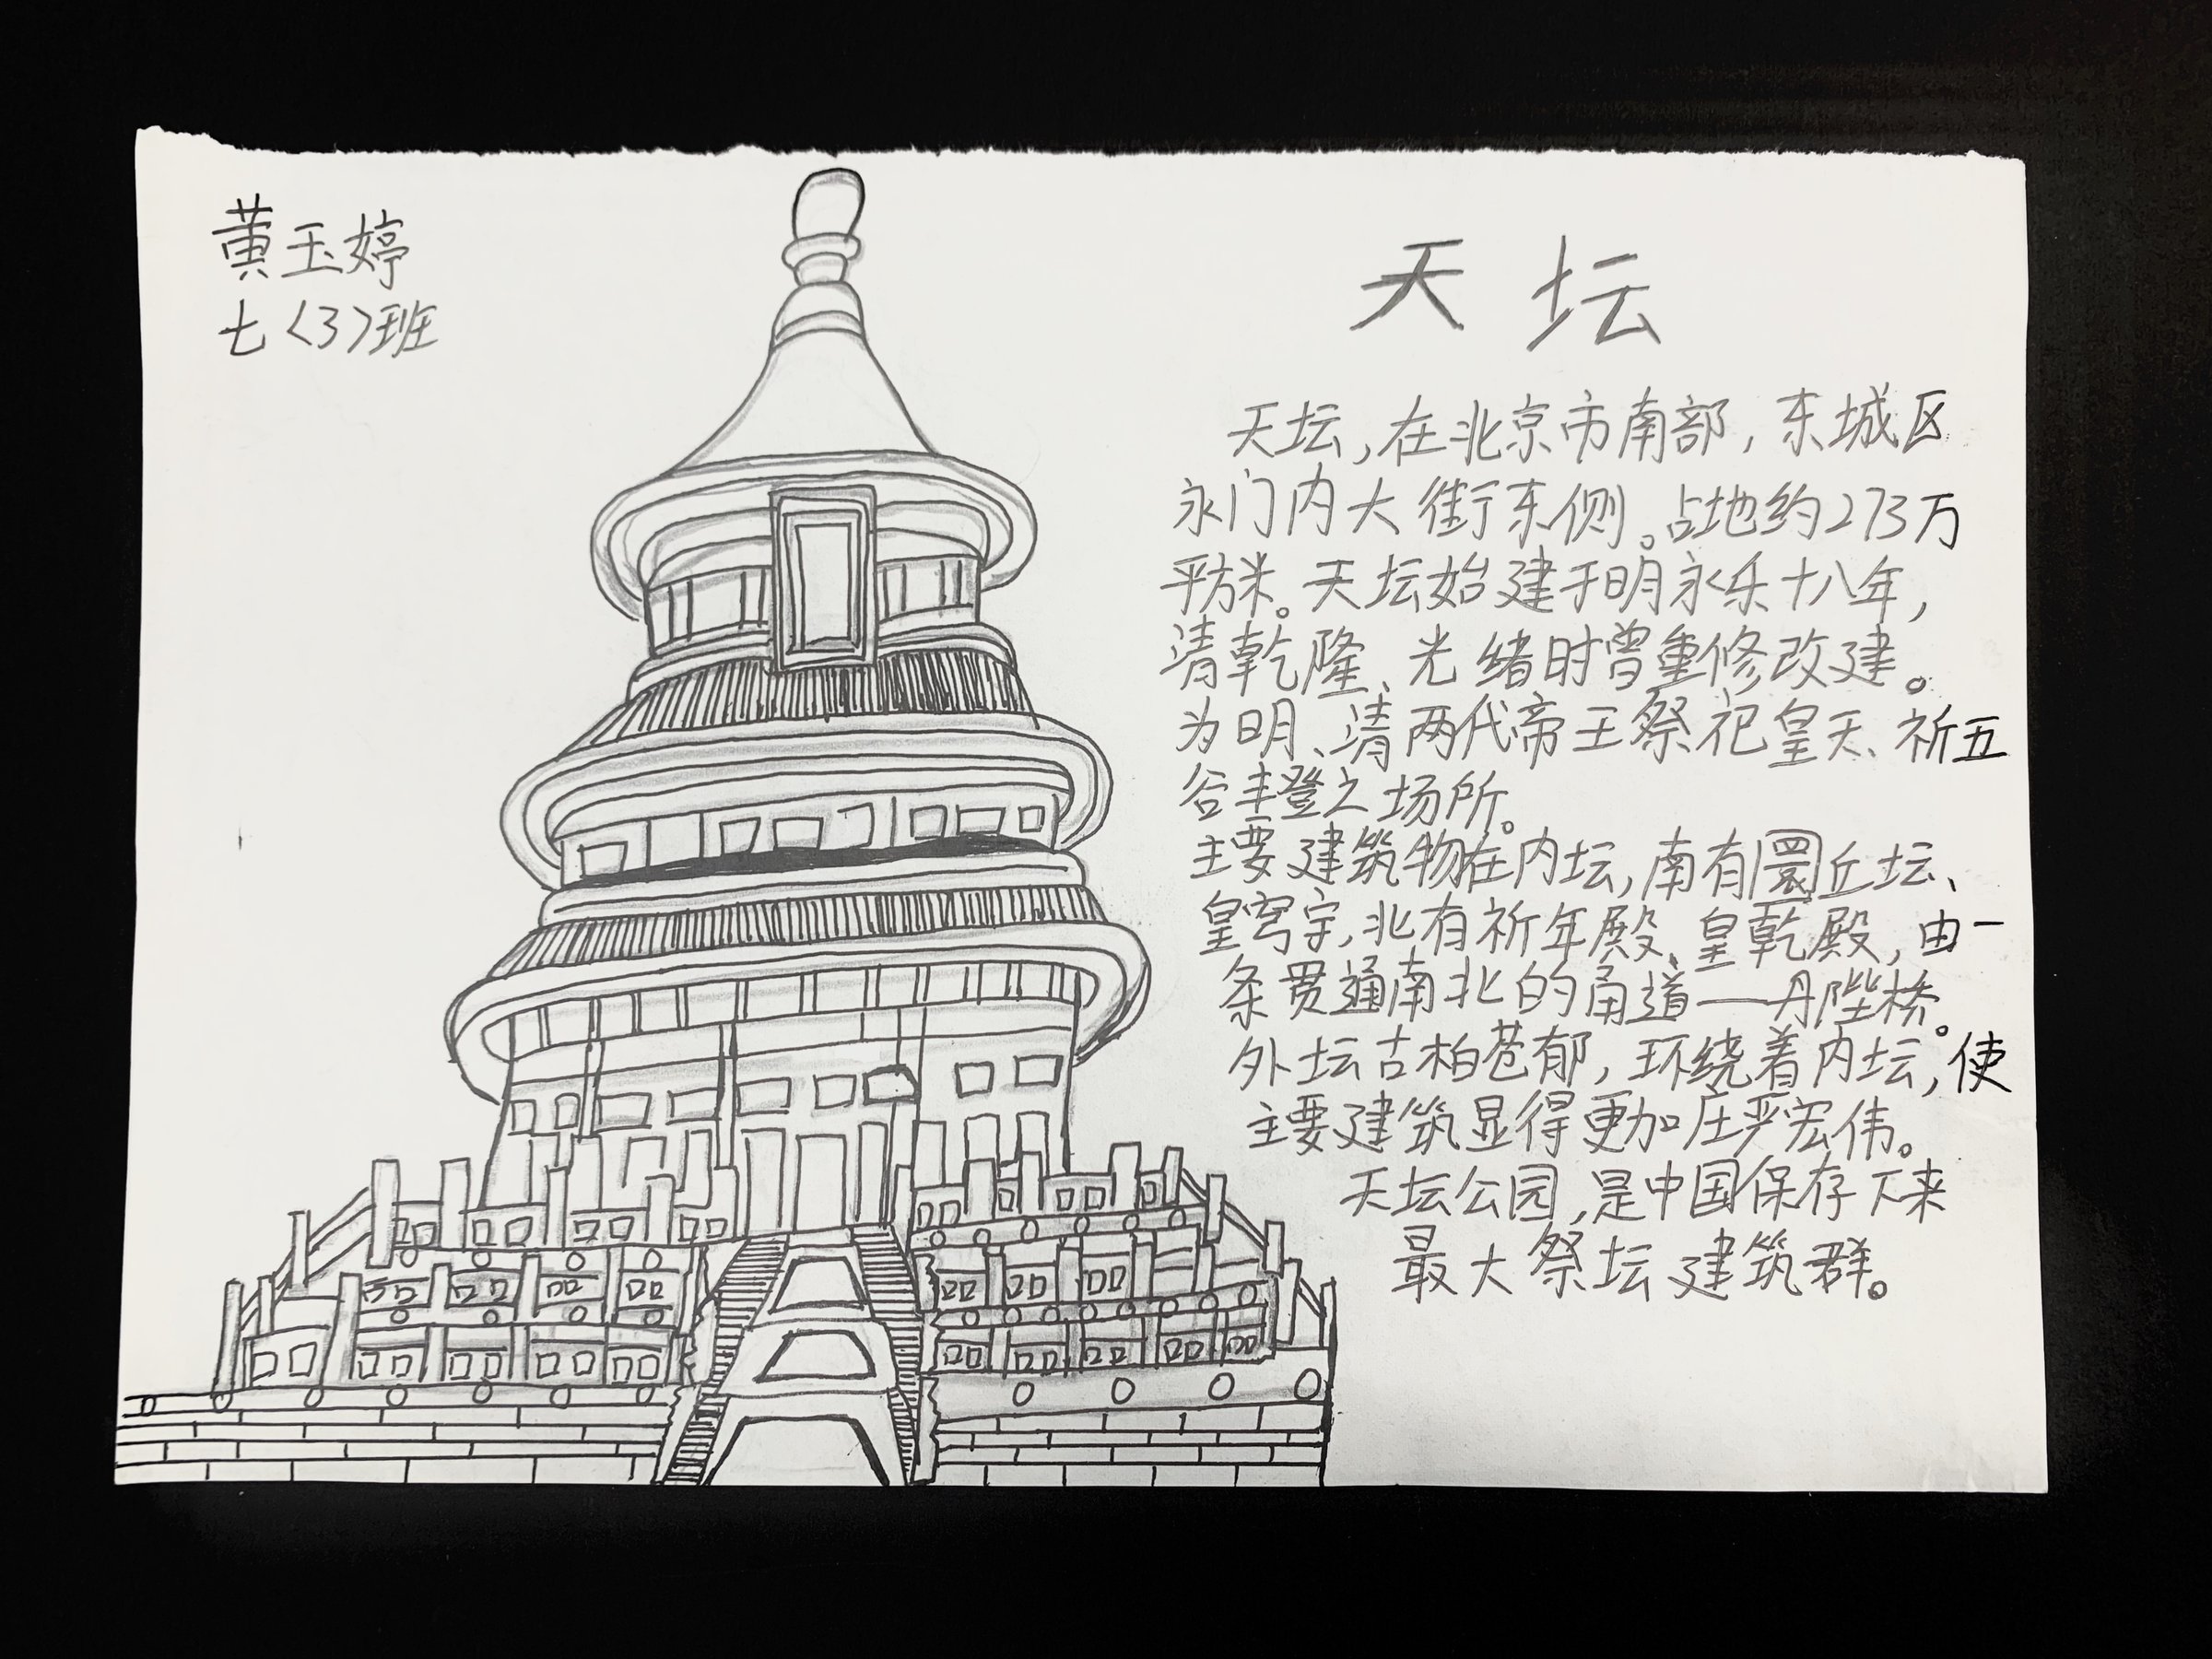 黄玉婷
七〈3〉班
天坛
天坛,在北京市南部,东城区
永门内大街东侧。占地约273万
平方米。天坛始建于明永乐十八年,
清乾隆、光绪时曾重修改建。
为明、清两代帝王祭祀皇天、祈五
谷丰登之场所。
主要建筑物在内坛,南有圜丘坛、
皇穹宇,北有祈年殿、皇乾殿,由一
条贯通南北的甬道——丹陛桥。
外坛古柏苍郁,环绕着内坛,使
主要建筑显得更加庄严宏伟。
天坛公园,是中国保存下来
最大祭坛建筑群。